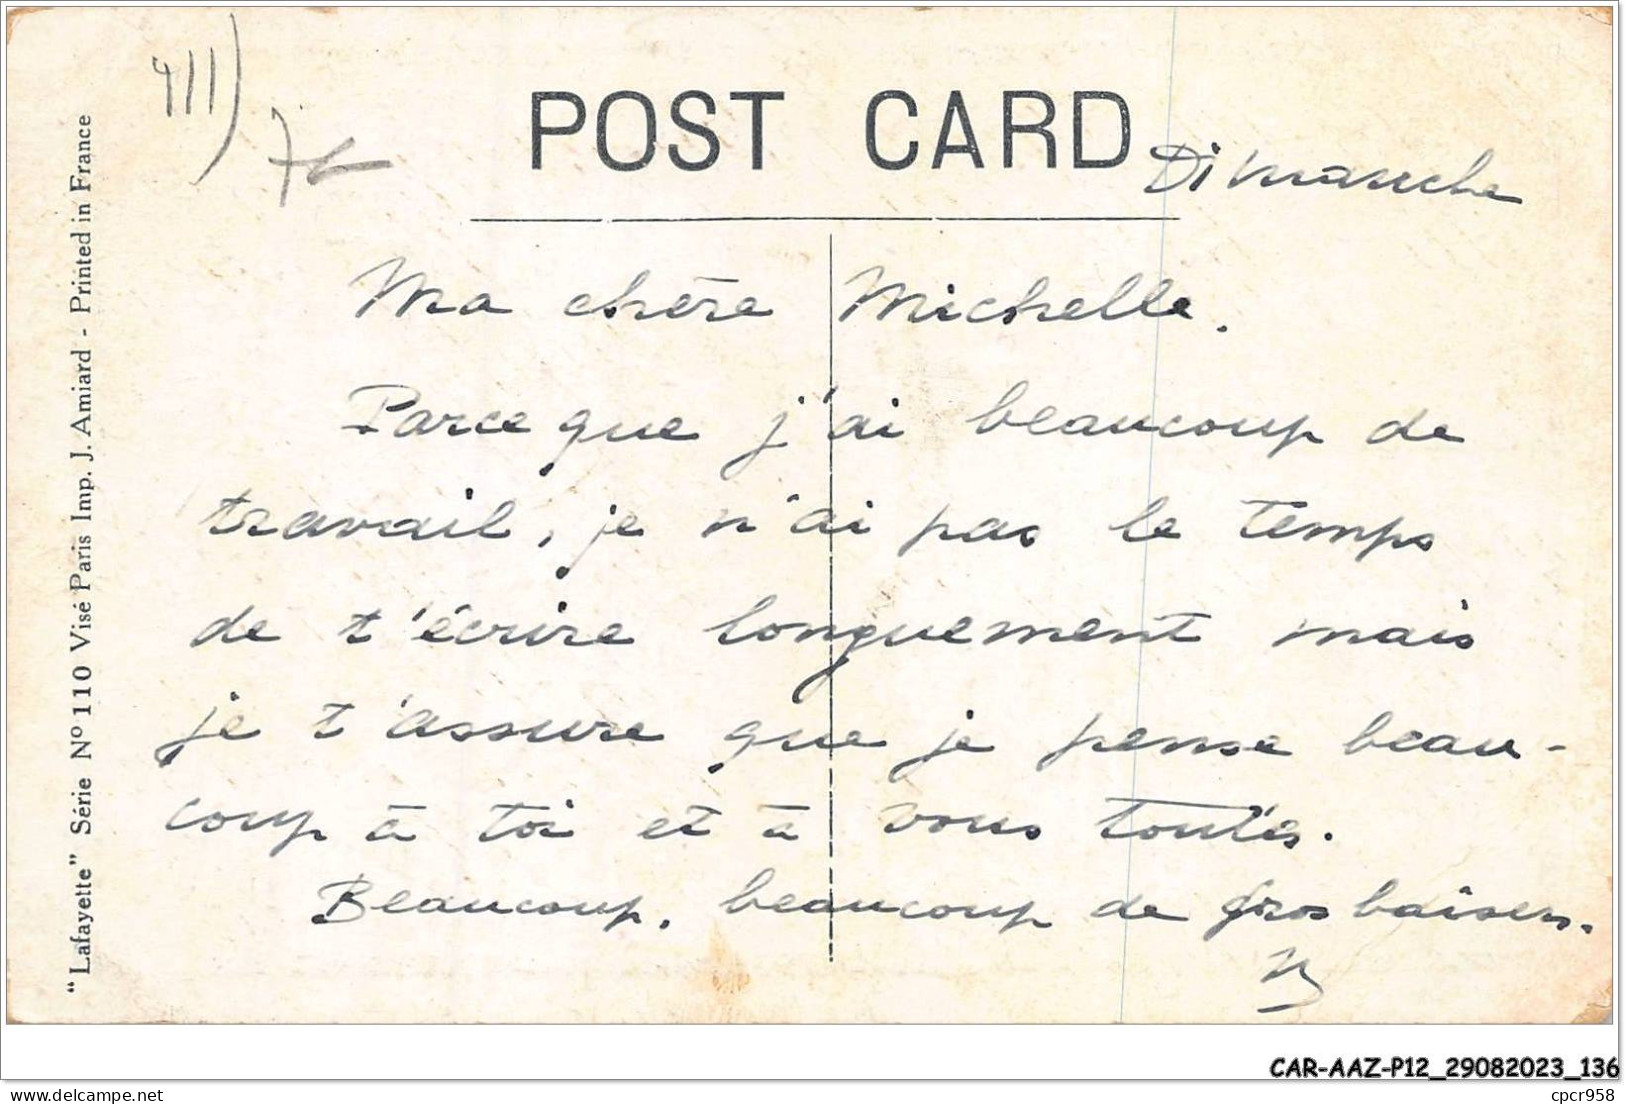 POST CARD
Dimanche
Ma chère Michelle.
Parce que j'ai beaucoup de
travail, je n'ai pas le temps
de t'écrire longuement mais
je t'assure que je pense beau-
coup à toi et à vous toutes.
Beaucoup, beaucoup de gros baisers.
"Lafayette" Série Nº 110 Visé Paris Imp. J. Amiard - Printed in France
CAR-AAZ-P12_29082023_136
cpcr958